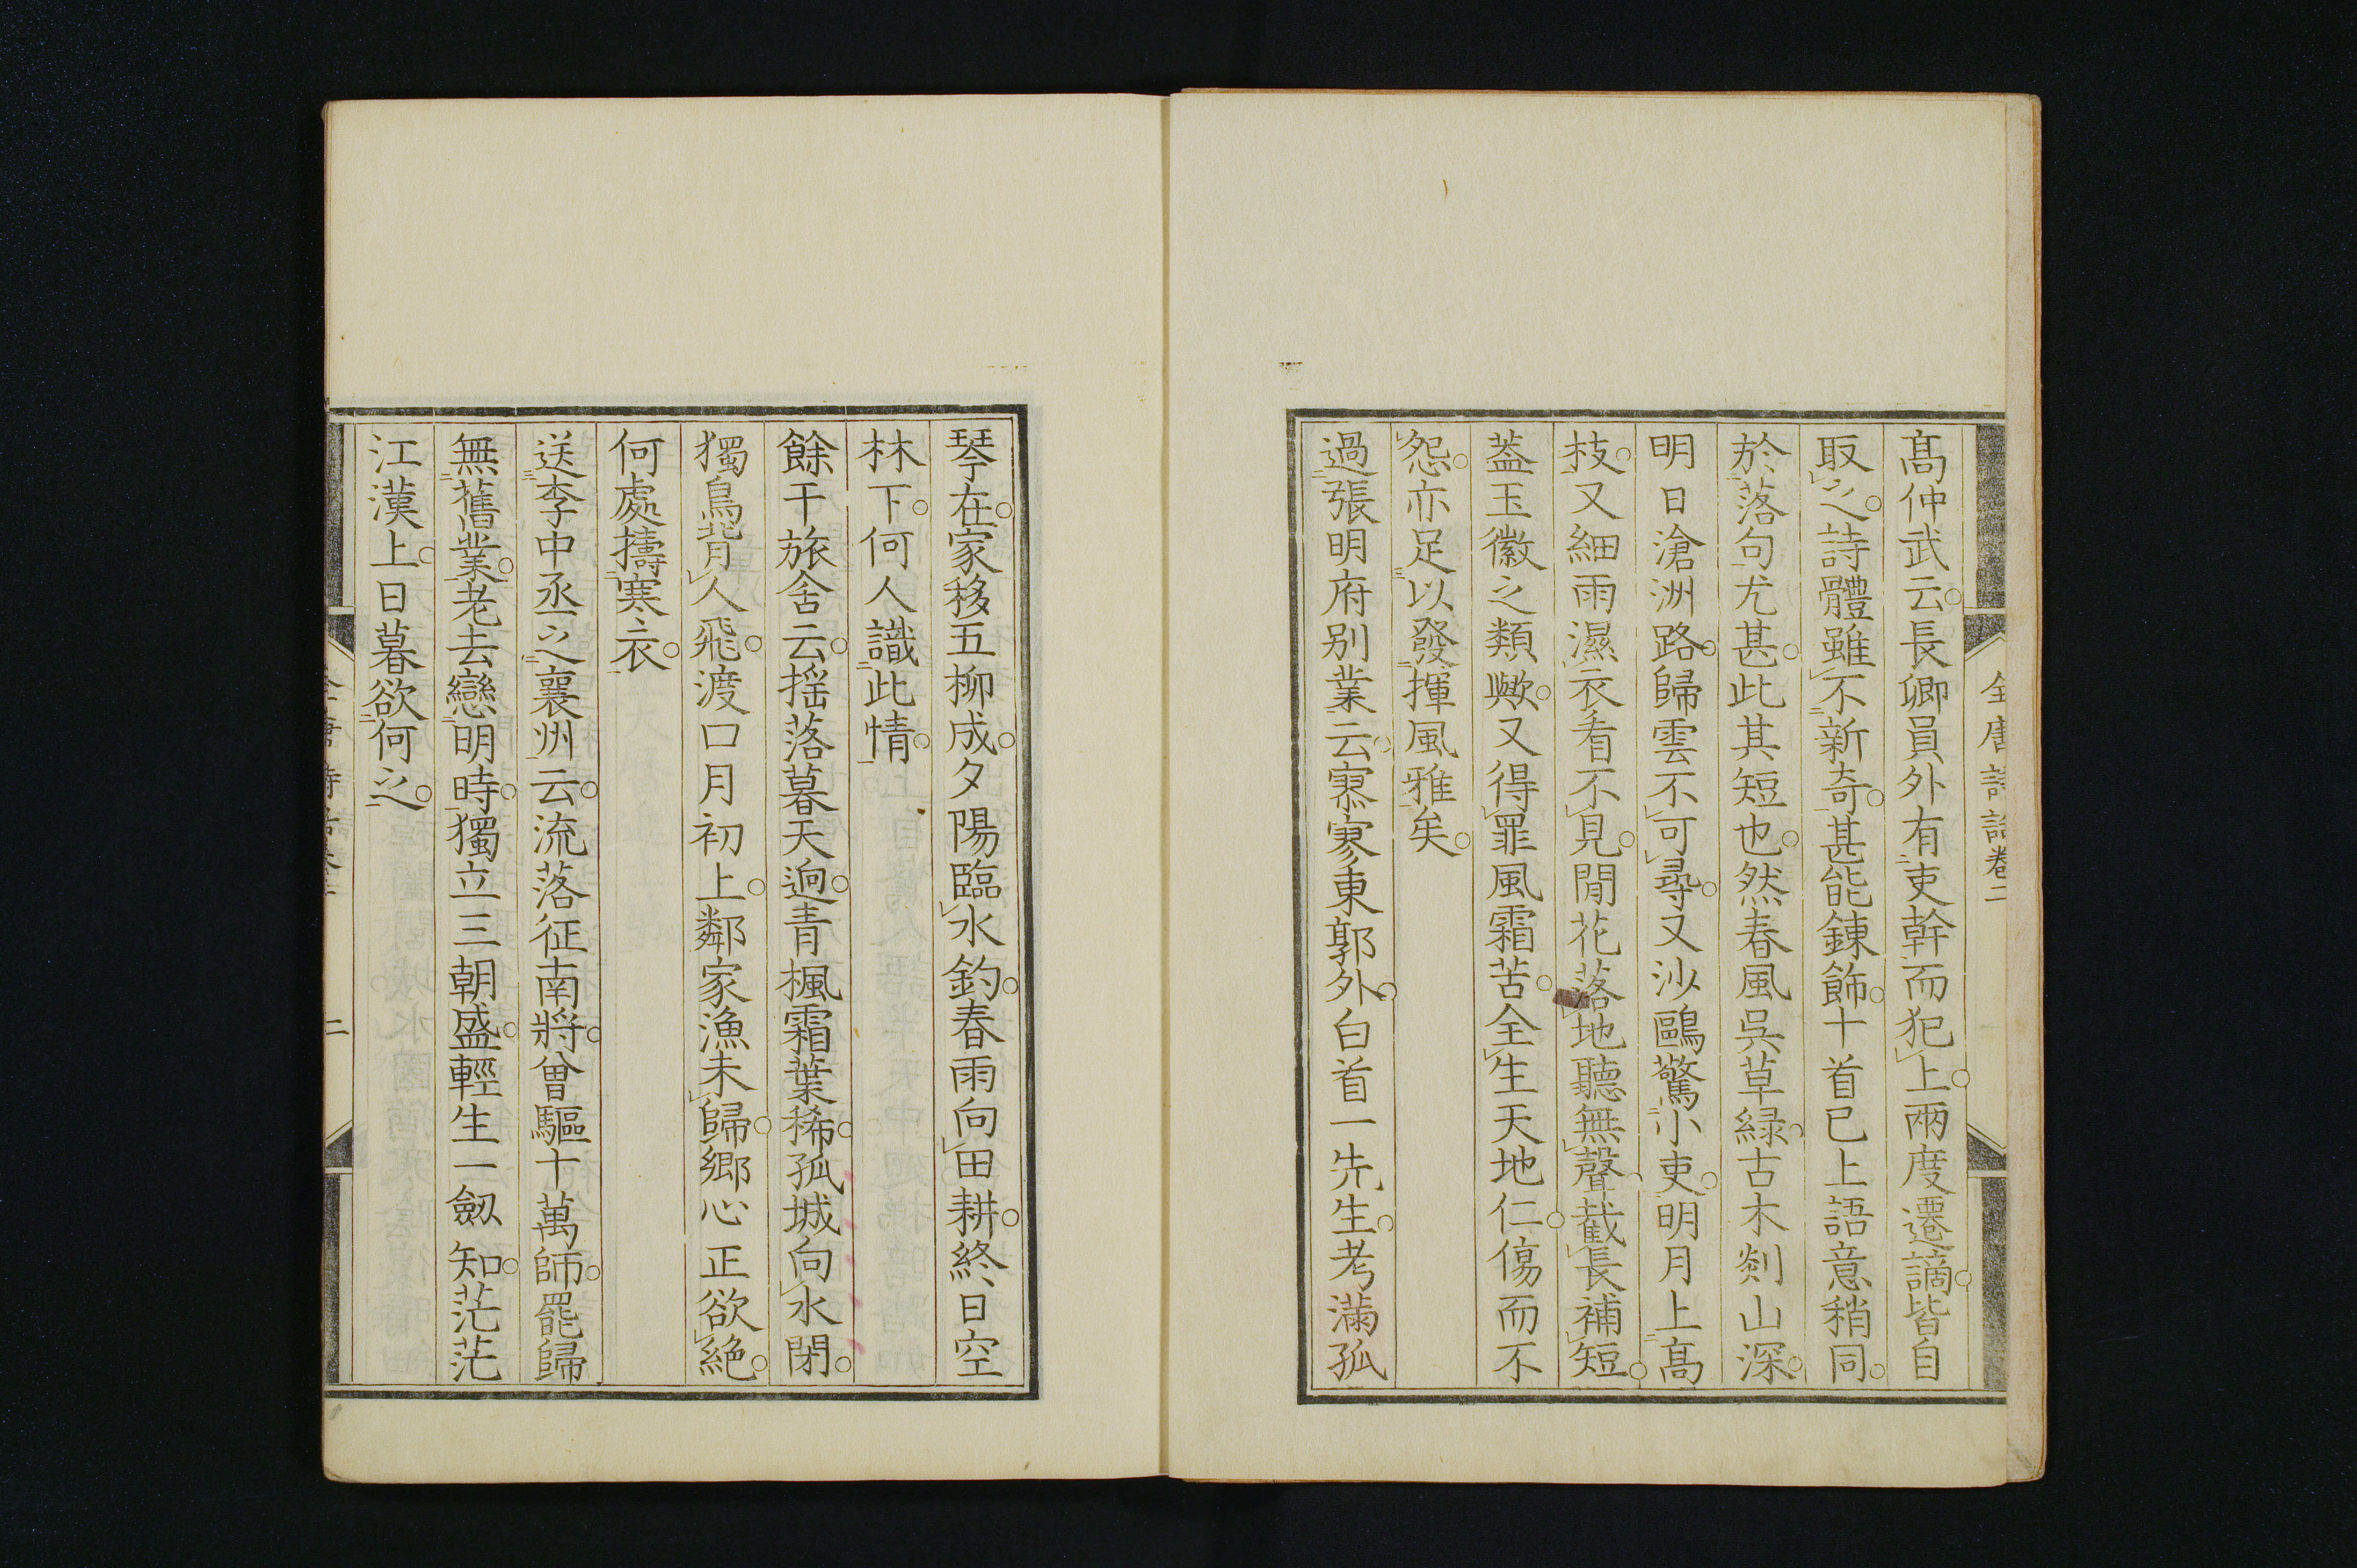 全唐詩話卷二
髙仲武云長卿員外有吏幹而犯上兩度遷謫皆自
取之詩體雖不新奇甚能鍊飾十首已上語意稍同
於落句尤甚此其短也然春風吳草緑古木剡山深
明日滄洲路歸雲不可尋又沙鷗驚小吏明月上髙
枝又細雨濕衣看不見閒花落地聽無聲截長補短
葢玉徽之類歟又得罪風霜苦全生天地仁傷而不
怨亦足以發揮風雅矣
過張明府别業云寥寥東郭外白首一先生考滿孤
琴在家移五柳成夕陽臨水釣春雨向田耕終日空
林下何人識此情
餘干旅舍云揺落暮天逈青楓霜葉稀孤城向水閉
獨鳥背人飛渡口月初上鄰家漁未歸鄉心正欲絶
何處擣寒衣
送李中丞之襄州云流落征南將曾驅十萬師罷歸
無舊業老去戀明時獨立三朝盛輕生一劒知茫茫
江漢上日暮欲何之
二